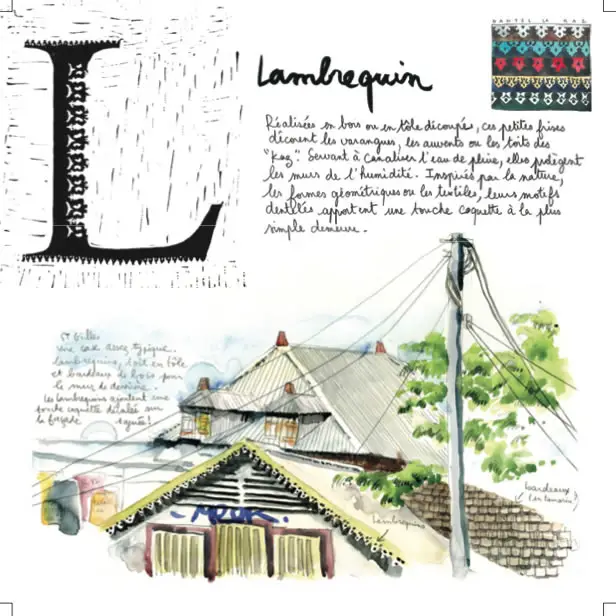 L
Lambrequin
Réalisées en bois ou en tôle découpée, ces petites frises
décorent les varangues, les auvents ou les toits des
"kaz". Servant à canaliser l'eau de pluie, elles protègent
les murs de l'humidité. Inspirés par la nature,
les formes géométriques ou les textiles, leurs motifs
dentelés apportent une touche coquette à la plus
simple demeure.
St Gilles
une case assez typique.
lambrequins, toit en tôle
et bardeaux de bois pour
le mur de derrière.
Les lambrequins ajoutent une
touche coquette détaillée sur
la façade
bardeaux
(en tamarin)
Lambrequins